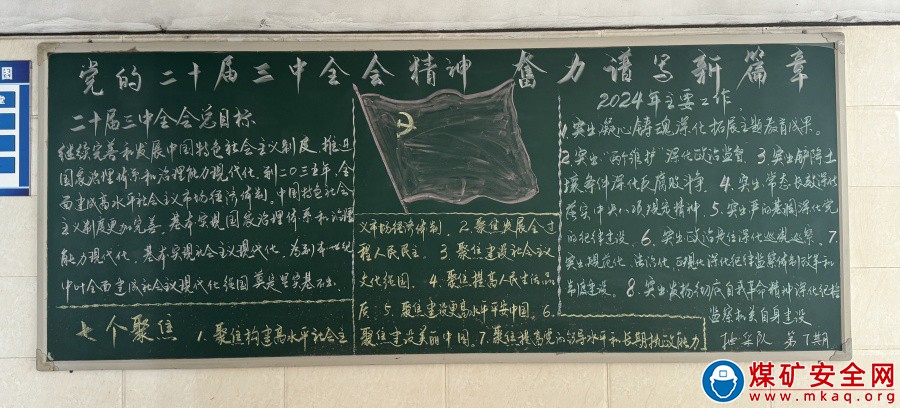 党的二十届三中全会精神 奋力谱写新篇章
二十届三中全会总目标
继续完善和发展中国特色社会主义制度、推进
国家治理体系和治理能力现代化。到二〇三五年,全
面建成高水平社会主义市场经济体制。中国特色社会
主义制度更加完善。基本实现国家治理体系和治理
能力现代化、基本实现社会主义现代化、为到本世纪
中叶全面建成社会主义现代化强国奠定坚实基础。
七个聚焦
1.聚焦构建高水平社会主
义市场经济体制。2.聚焦发展全过
程人民民主。3.聚焦建设社会主义
文化强国。4.聚焦提高人民生活品
质。5.聚焦建设更高水平平安中国。6.
聚焦建设美丽中国。7.聚焦提高党的领导水平和长期执政能力
2024年主要工作.
1.突出凝心铸魂深化拓展主题教育成果。
2.突出“两个维护”深化政治监督。3.突出铲除土
壤条件深化反腐败斗争。4.突出常态长效深化
落实中央八项规定精神。5.突出严的基调深化党
的纪律建设。6.突出政治定位深化巡视巡察。7.
突出规范化、法治化、正规化深化纪律监察体制改革和
制度建设。8.突出发扬彻底自我革命精神深化纪检
监察机关自身建设
第7期
图
煤矿安全网
www.mkaq.org